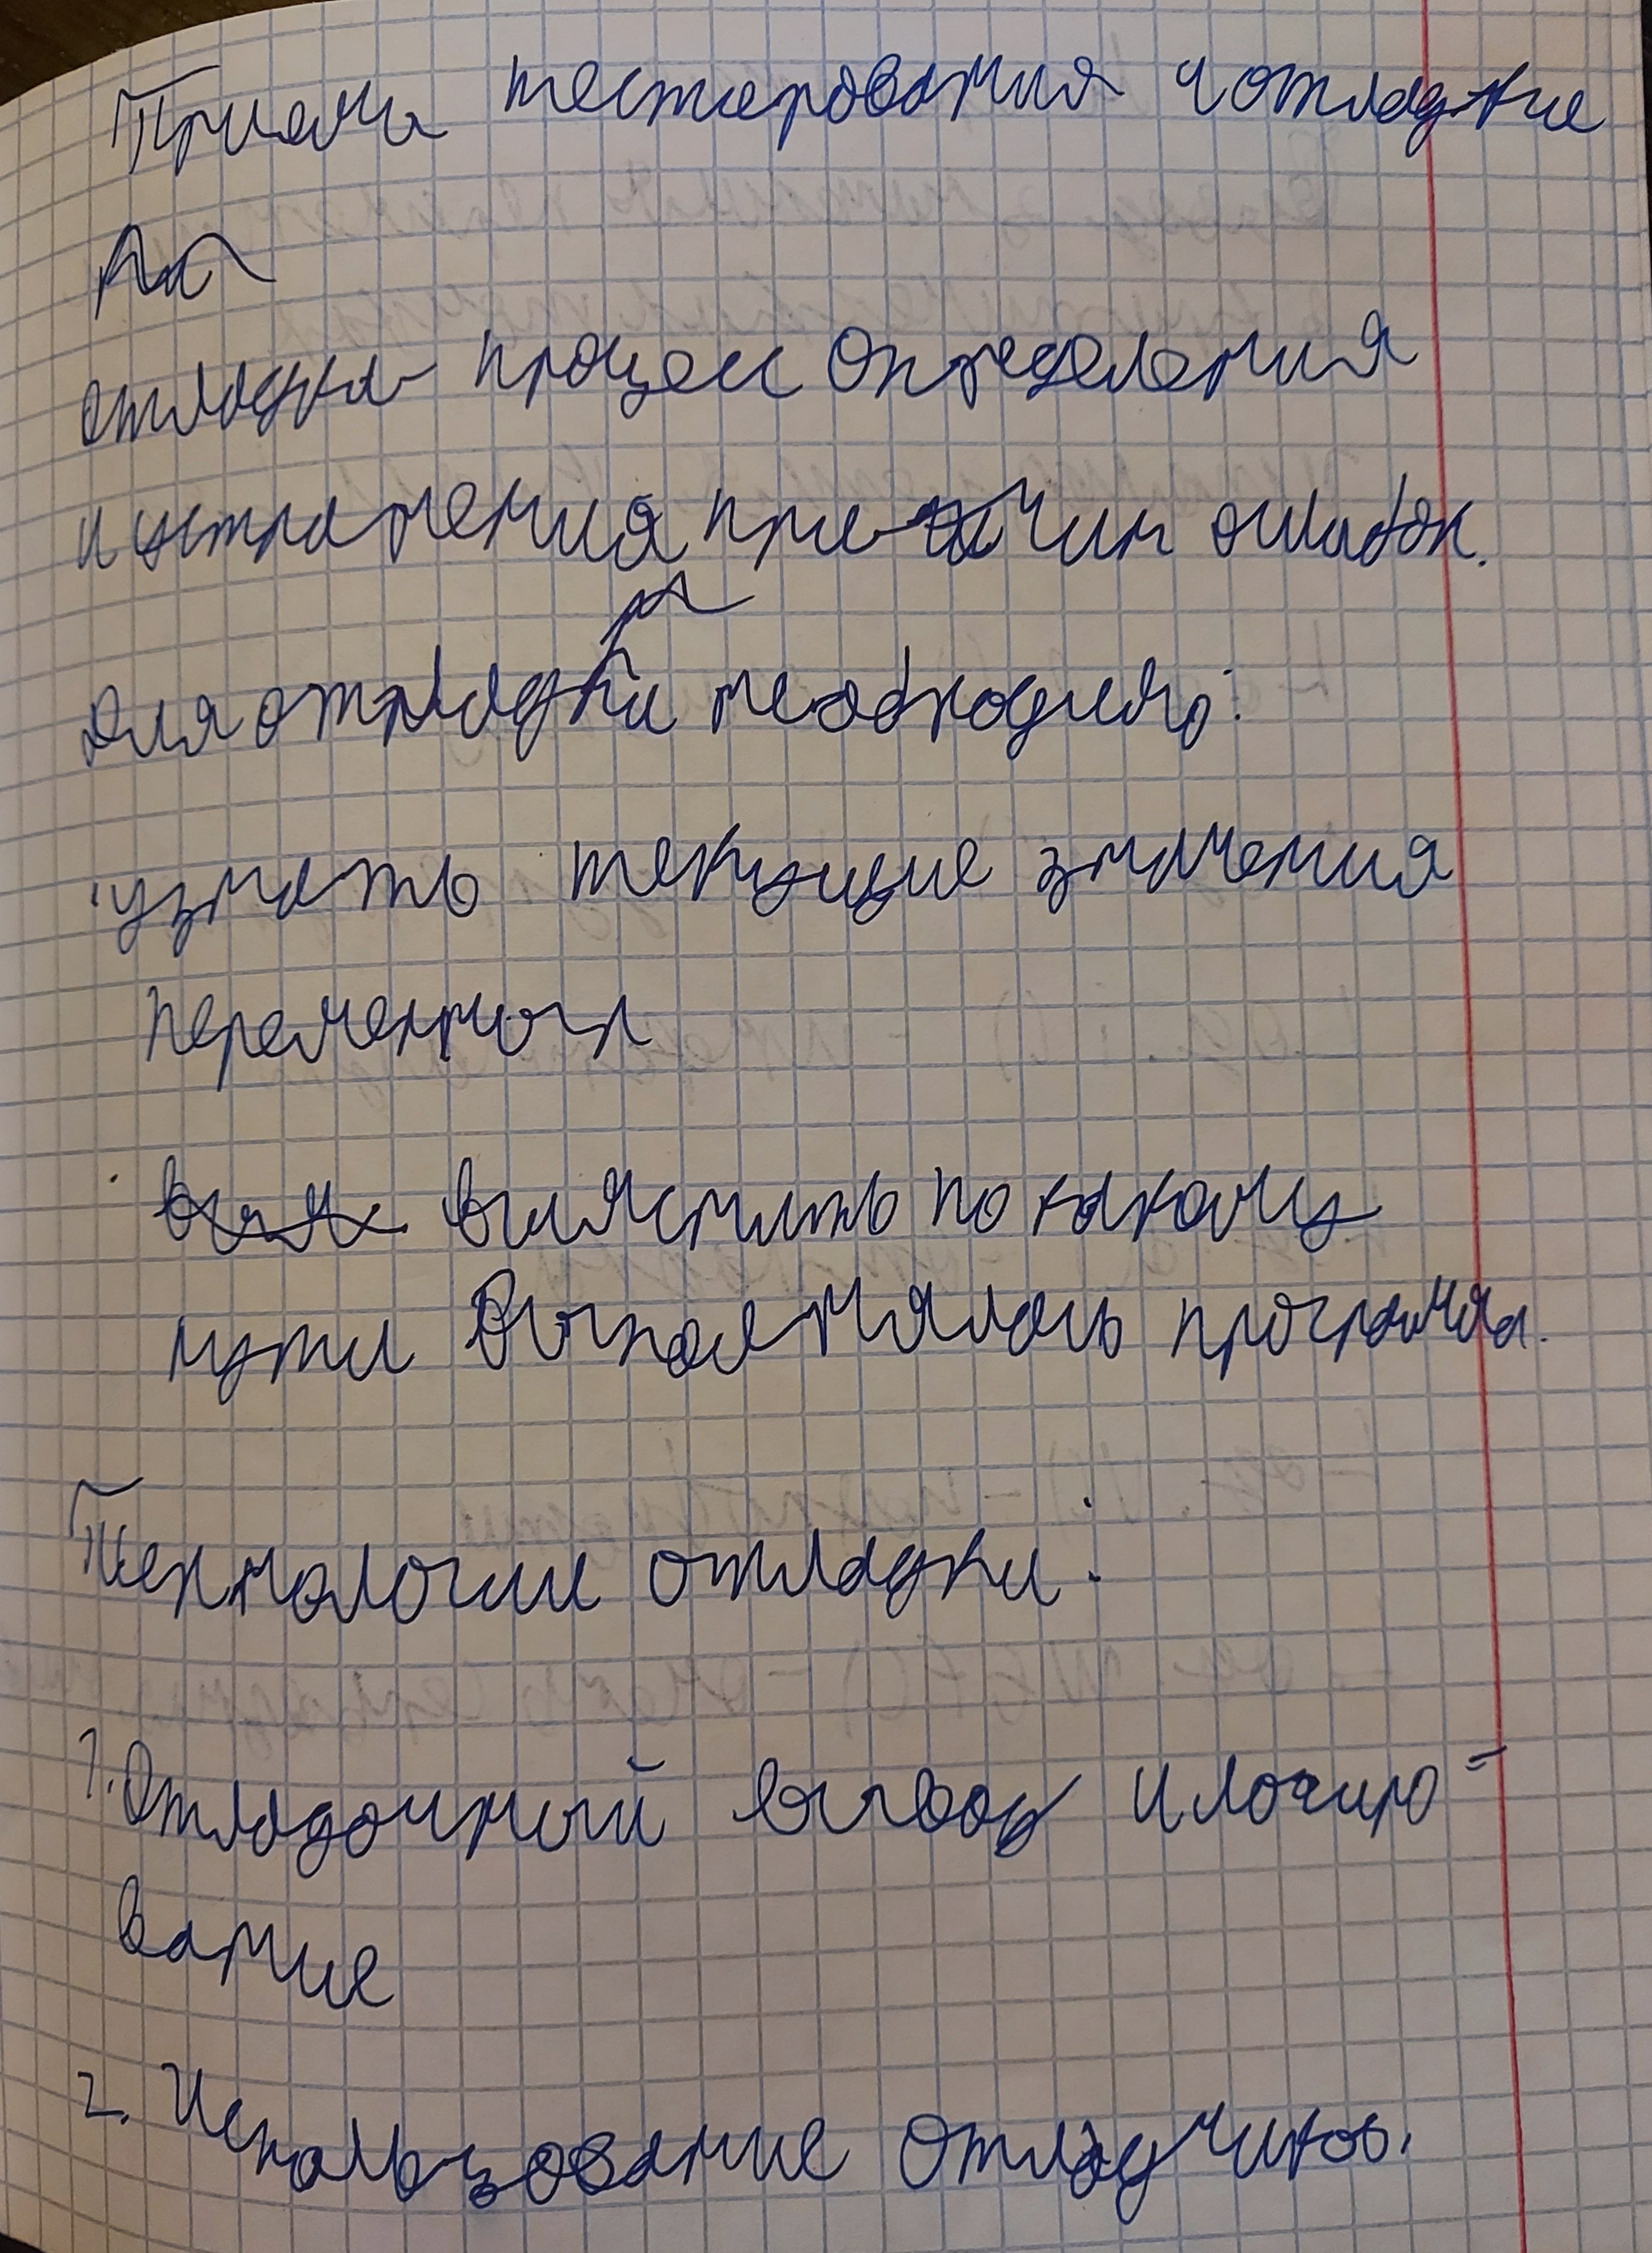 Приемы тестирования и отладкие
отладка процесс Определения
и устранения причин ошибок.
для отладки необходимо:
· узнать текущие значения
переменных
· выяснить по какому
пути Выполнялась программа.
Технологие отладки:
1. Отладочный вывод и логиро=
вание
2. Использование отладчиков.